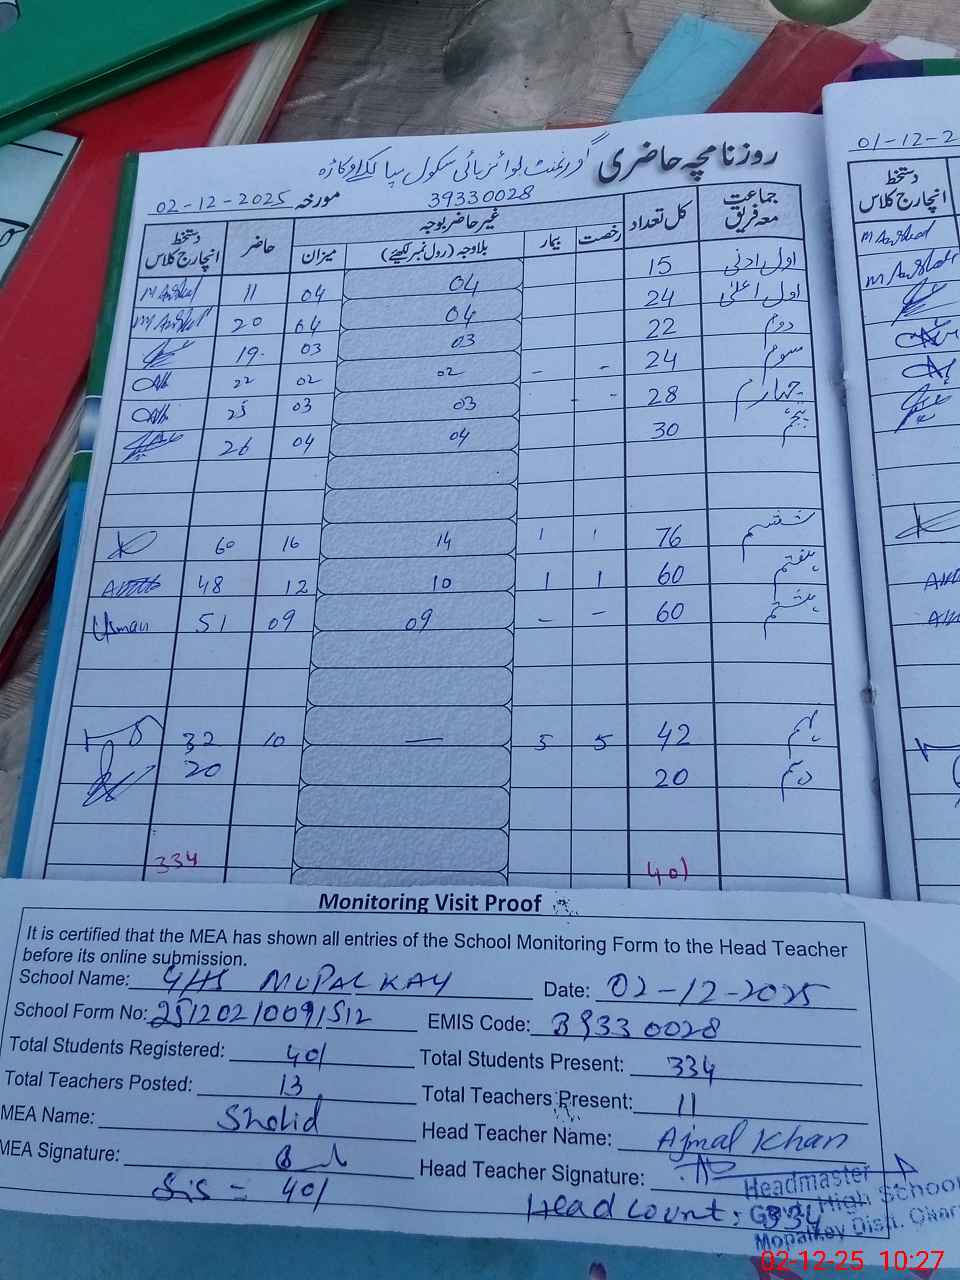 روزنامچہ حاضری گورنمنٹ بوائز ہائی سکول
39330028
مورخہ 02-12-2025
جماعت معہ فریق کل تعداد غیر حاضر بوجہ حاضر دستخط انچارج کلاس
رخصت بیمار بلاوجہ (رول نمبر لکھیئے) میزان
اول ادنیٰ 15 04 04 11 M Arshad
اول اعلیٰ 24 04 04 20 M Arshad
دوم 22 03 03 19
سوم 24 - - 02 02 22
چہارم 28 - - 03 03 25
پنجم 30 04 04 26
ششم 76 1 1 14 16 60
ہفتم 60 1 1 10 12 48
ہشتم 60 - - 09 09 51 Usman
نہم 42 5 5 — 10 32
دہم 20 20
401 334
01-12-2
دستخط
انچارج کلاس
M Arshad
M Arshad
Monitoring Visit Proof
It is certified that the MEA has shown all entries of the School Monitoring Form to the Head Teacher
before its online submission.
School Name: GHS MOPALKAY Date: 02-12-2025
School Form No: 25120210091512 EMIS Code: 39330028
Total Students Registered: 401 Total Students Present: 334
Total Teachers Posted: 13 Total Teachers Present: 11
MEA Name: Shahid Head Teacher Name: Ajmal Khan
MEA Signature: Head Teacher Signature:
Sis = 401 Head count: 334
Headmaster
Govt. High School
Mopalkey Distt. Okar
02-12-25 10:27